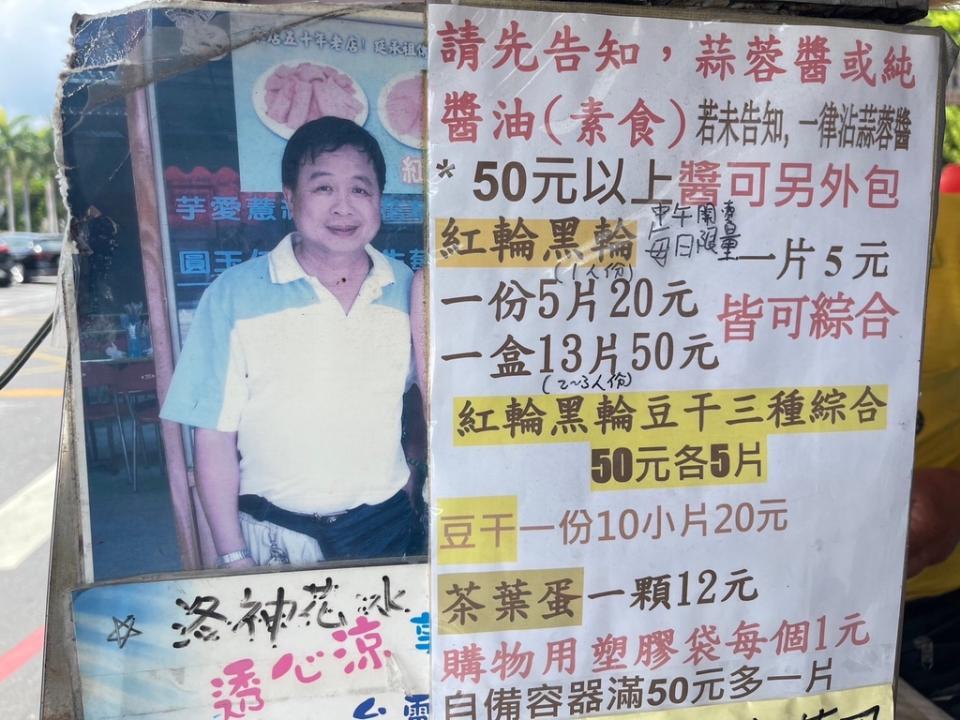 五十年老店！
紅
芋愛薏
圓玉
洛神花水
透心涼
請先告知，蒜蓉醬或純
醬油(素食)若未告知,一律沾蒜蓉醬
* 50元以上醬可另外包
紅輪黑輪 中午開賣
每日限量 一片5元
(1人份)
一份5片20元 皆可綜合
一盒13片50元
(2~3人份)
紅輪黑輪豆干三種綜合
50元各5片
豆干一份10小片20元
茶葉蛋一顆12元
購物用塑膠袋每個1元
自備容器滿50元多一片